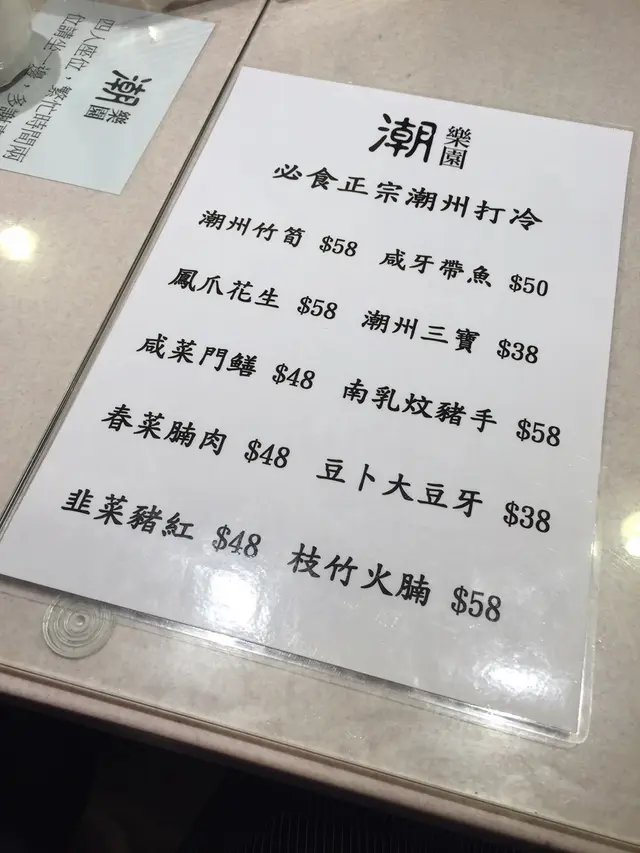 四人座位，繁忙時間兩
位請坐一邊，多謝
潮樂園
潮樂園
必食正宗潮州打冷
潮州竹筍 $58 咸牙帶魚 $50
鳳爪花生 $58 潮州三寶 $38
咸菜門鱔 $48 南乳炆豬手 $58
春菜腩肉 $48 豆卜大豆牙 $38
韭菜豬紅 $48 枝竹火腩 $58